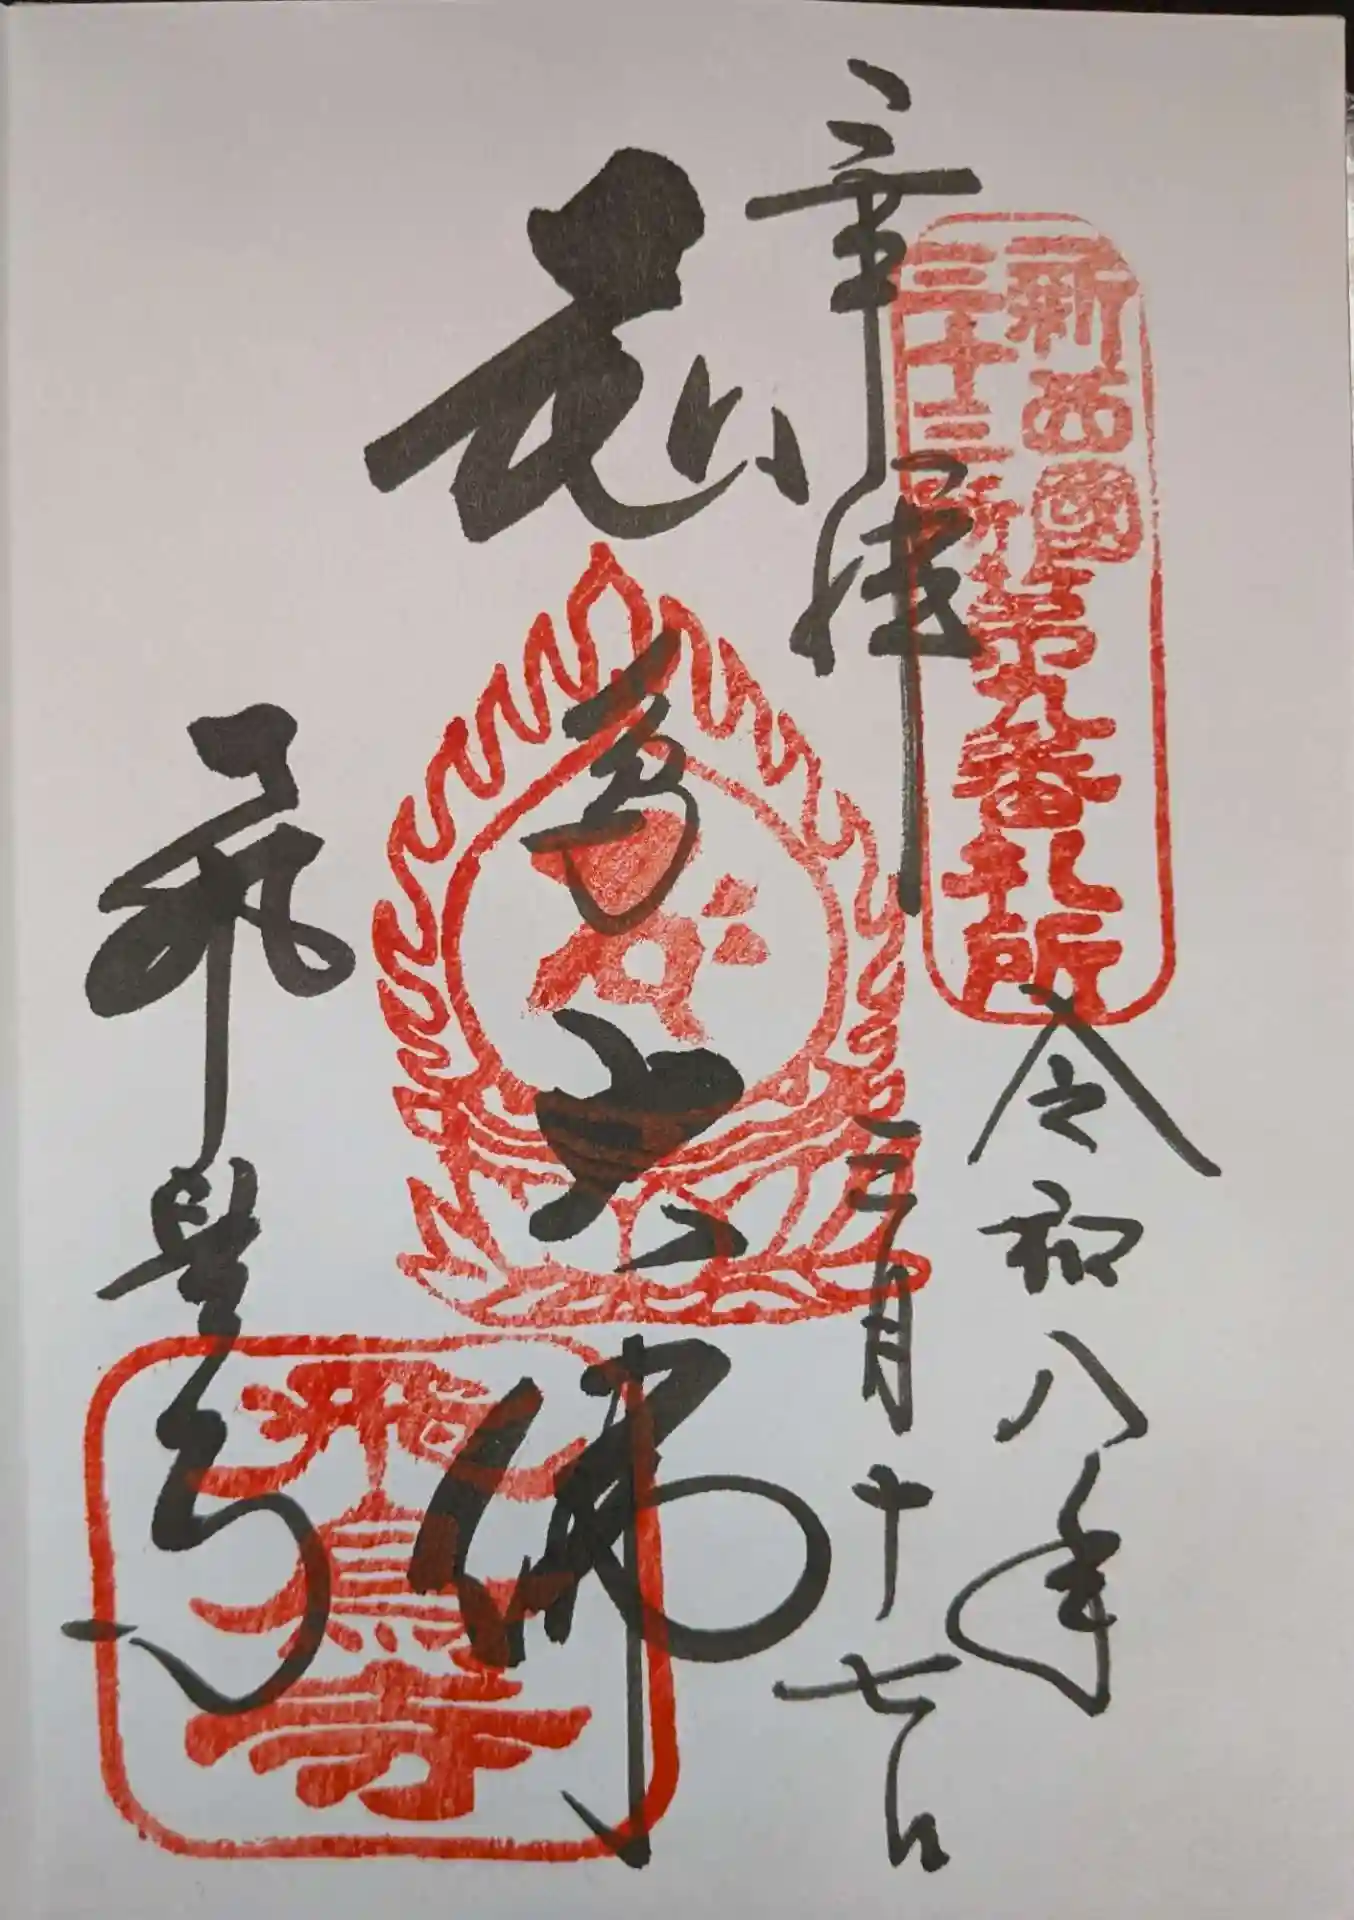 奉拝
新西國
三十三所
第九番札所
令和八年
三月十七日
飛鳥大佛
飛鳥寺
飛鳥寺